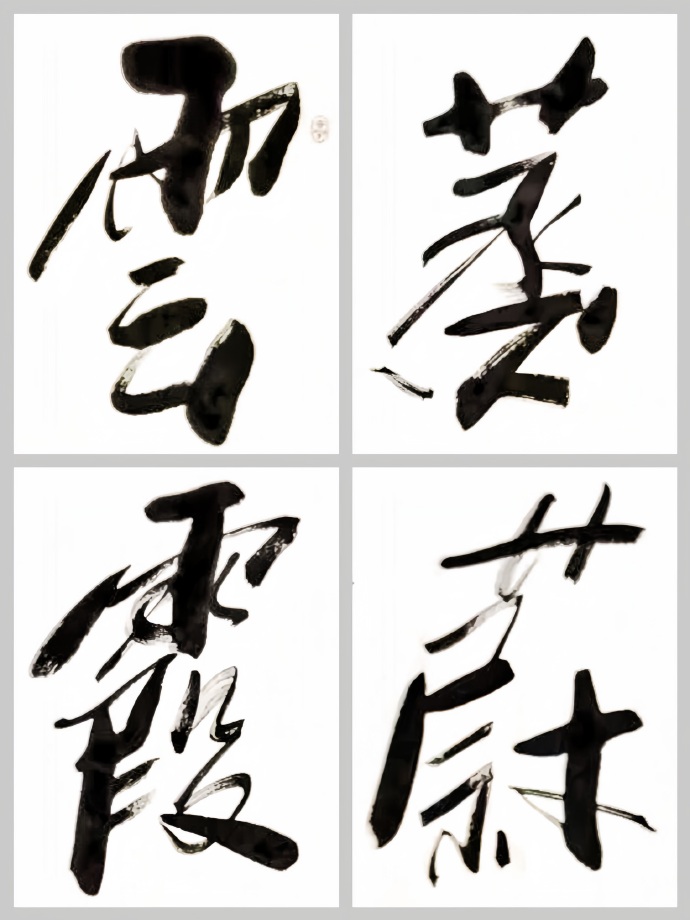 雲蒸
霞蔚